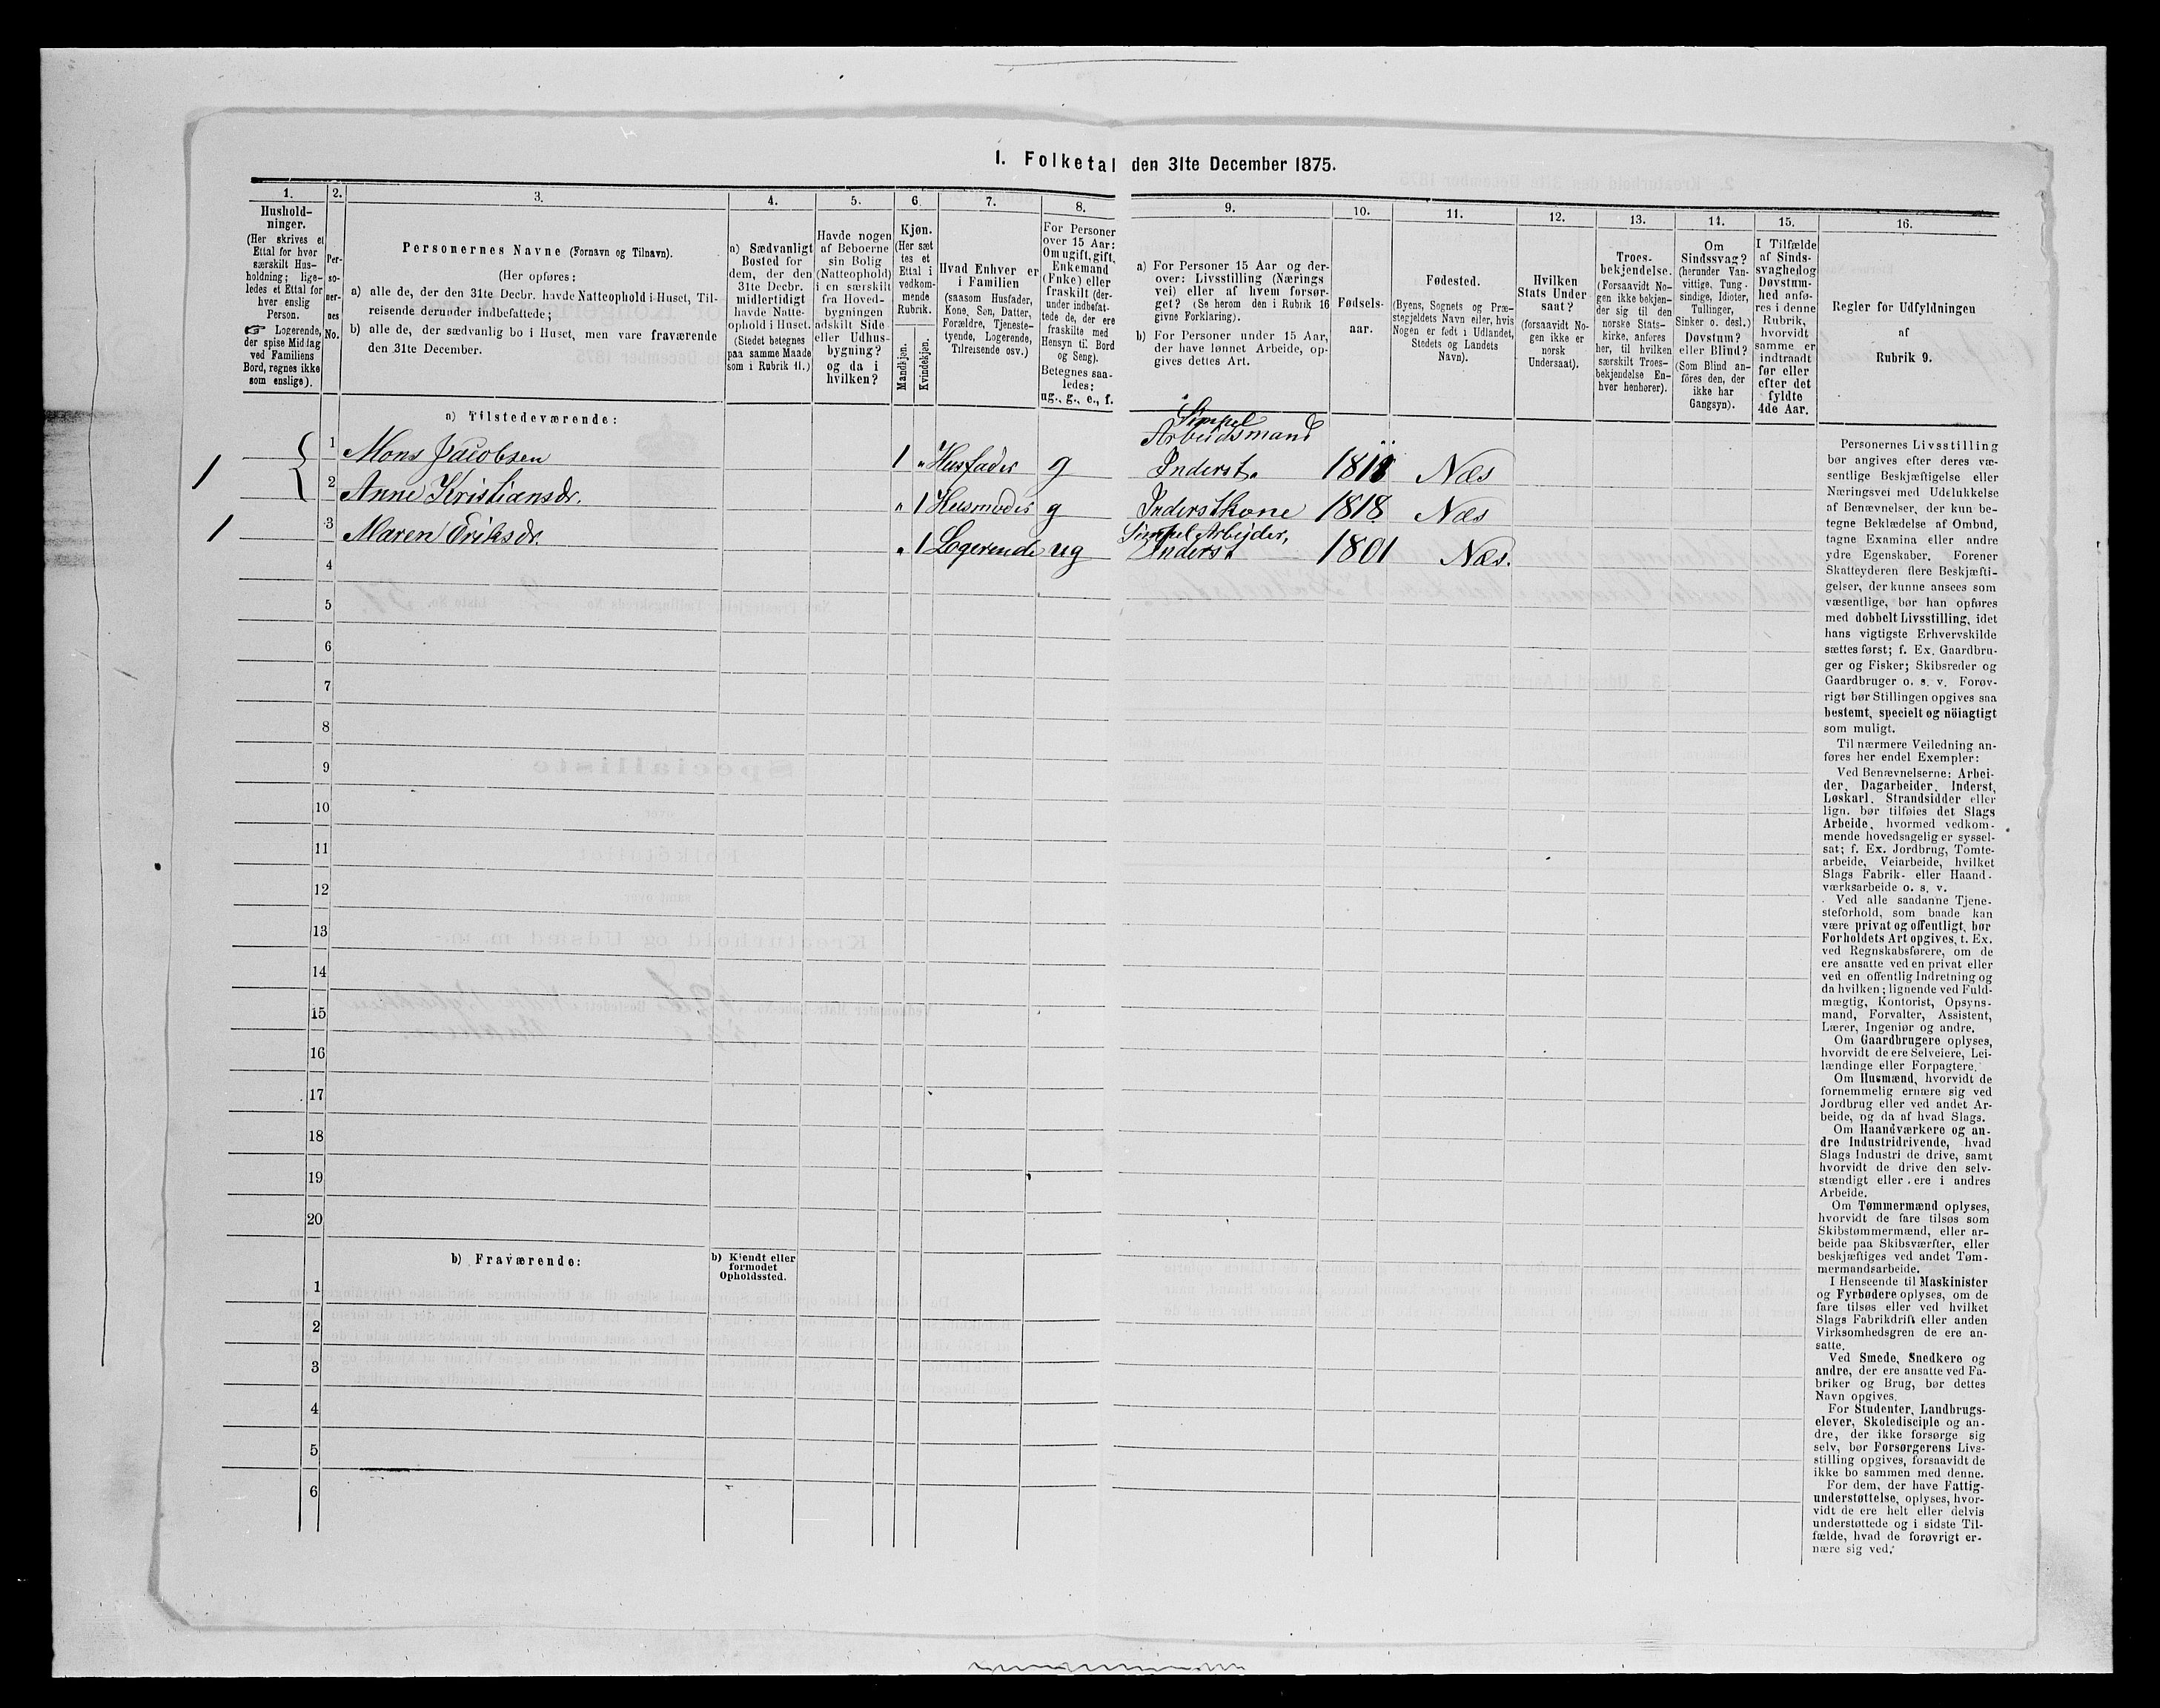 1. Folketal den 31te December 1875.
1. 2. 3. 4. 5. 6. 7. 8. 9. 10. 11. 12. 13. 14. 15. 16.
Hushold-
ninger.
(Her skrives et
Ettal for hver
særskilt Hus-
holdning; lige-
ledes et Ettal for
hver enslig
Person.
☞ Logerende,
der spise Middag
ved Familiens
Bord, regnes ikke
som enslige).
Per-
so-
ner-
nes
No.
Personernes Navne (Fornavn og Tilnavn).
(Her opføres:
a) alle de, der den 31te Decbr. havde Natteophold i Huset, Til-
reisende derunder indbefattede;
b) alle de, der sædvanlig bo i Huset, men vare fraværende
den 31te December.
a) Sædvanligt
Bosted for
dem, der den
31te Decbr.
midlertidigt
havde Natte-
ophold i Huset.
(Stedet betegnes
paa samme Maade
som i Rubrik 11.)
Havde nogen
af Beboerne
sin Bolig
(Natteophold)
i en særskilt
fra Hoved-
bygningen
adskilt Side-
eller Udhus-
bygning?
og da i
hvilken?
Kjøn.
(Her sæt
tes et
Ettal i
vedkom-
mende
Rubrik.
Mandkjøn.
Kvindekjøn.
Hvad Enhver er
i Familien
(saasom Husfader,
Kone, Søn, Datter,
Forældre, Tjeneste-
tyende, Logerende,
Tilreisende osv.)
For Personer
over 15 Aar:
Om ugift, gift,
Enkemand
(Enke) eller
fraskilt (der-
under indbefat-
tede de, der ere
fraskilte med
Hensyn til Bord
og Seng).
Betegnes saa-
ledes:
ug., g., e., f.
a) For Personer 15 Aar og der-
over: Livsstilling (Nærings
vei) eller af hvem forsør-
get? (Se herom den i Rubrik 16
givne Forklaring).
b) For Personer under 15 Aar,
der have lønnet Arbeide, op-
gives dettes Art.
Fødsels-
aar.
Fødested.
(Byens, Sognets og Præ-
stegjeldets Navn eller, hvis
Nogen er født i Udlandet,
Stedets og Landets
Navn).
Hvilken
Stats Under
saat?
(forsaavidt No-
gen ikke er
norsk
Undersaat).
Troes-
bekjendelse.
(Forsaavidt No-
gen ikke bekjen-
der sig til den
norske Stats-
kirke, anføres
her, til hvilken
særskilt Troes-
bekjendelse En-
hver henhører).
Om
Sindssvag?
(herunder Van-
vittige, Tung-
sindige, Idioter,
Tullinger,
Sinker o. desl.)
Døvstum?
eller Blind?
(Som Blind an-
føres den, der
ikke har
Gangsyn).
I Tilfælde
af Sinds-
svaghed og
Døvstum-
hed anfø-
res i denne
Rubrik,
hvorvidt
samme er
indtraadt
før eller
efter det
fyldte
4de Aar.
Regler for Udfyldningen
af
Rubrik 9.
a) Tilstedeværende:
Simpel
Arbeidsmand
1 1 Mons Jacobsen 1 " Husfader g Inderst. Næs
2 Anne Kristiansdr. " 1 Husmoder g Inderstkone 1818 Næs
Simpel Arbejder,
1 3 Maren Eriksdr. " 1 Logerende ug Inderst 1801 Næs.
4
5
6
7
8
9
10
11
12
13
14
15
16
17
18
19
20
b) Fraværende:
b) Kjendt eller
formodet
Opholdssted.
1
2
3
4
5
6
Personernes Livsstilling
bør angives efter deres væ-
sentlige Beskjæftigelse eller
Næringsvei med Udelukkelse
af Benævnelser, der kun be-
tegne Beklædelse af Ombud,
tagne Examina eller andre
ydre Egenskaber. Forener
Skatteyderen flere Beskjæfti-
gelser, der kunne ansees som
væsentlige, bør han opføres
med dobbelt Livsstilling, idet
hans vigtigste Erhvervskilde
sættes først; f. Ex. Gaardbru-
ger og Fisker; Skibsreder og
Gaardbruger o. s. v. Forøv-
rigt bør Stillingen opgives saa
bestemt, specielt og nöiagtigt
som muligt.
Til nærmere Veiledning an-
føres her endel Exempler:
Ved Benævnelserne: Arbei-
der, Dagarbeider, Inderst,
Løskarl, Strandsidder eller
lign. bør tilføies det Slags
Arbeide, hvormed vedkom-
mende hovedsagelig er syssel-
sat; f. Ex. Jordbrug, Tomte-
arbeide, Veiarbeide, hvilket
Slags Fabrik- eller Haand-
værksarbeide o. s. v.
Ved alle saadanne Tjene-
steforhold, som baade kan
være privat og offentligt, bør
Forholdets Art opgives, t. Ex.
ved Regnskabsførere, om de
ere ansatte ved en privat eller
ved en offentlig Indretning og
da hvilken; lignende ved Fuld-
mægtig, Kontorist, Opsyns-
mand, Forvalter, Assistent,
Lærer, Ingeniør og andre.
Om Gaardbrugere oplyses,
hvorvidt de ere Selveiere, Lei-
lændinge eller Forpagtere.
Om Husmænd, hvorvidt de
fornemmelig ernære sig ved
Jordbrug eller ved andet Ar-
beide, og da af hvad Slags.
Om Haandværkere og an-
dre Industridrivende, hvad
Slags Industri de drive, samt
hvorvidt de drive den selv-
stændigt eller ere i andres
Arbeide.
Om Tømmermænd oplyses,
hvorvidt de fare tilsøs som
Skibstømmermænd, eller ar-
beide paa Skibsværfter, eller
beskjæftiges ved andet Tøm-
mermandsarbeide.
I Henseende til Maskinister
og Fyrbødere oplyses, om de
fare tilsøs eller ved hvilket
Slags Fabrikdrift eller anden
Virksomhedsgren de ere an-
satte.
Ved Smede, Snedkere og
andre, der ere ansatte ved Fa-
briker og Brug, bør dettes
Navn opgives.
For Studenter, Landbrugs-
elever, Skoledisciple og an-
dre, der ikke forsørge sig
selv, bør Forsørgerens Livs-
stilling opgives, forsaavidt de
ikke bo sammen med denne.
For dem, der have Fattig-
understøttelse, oplyses, hvor-
vidt de ere helt eller delvis
understøttede og i sidste Til-
fælde, hvad de forøvrigt er-
nære sig ved.